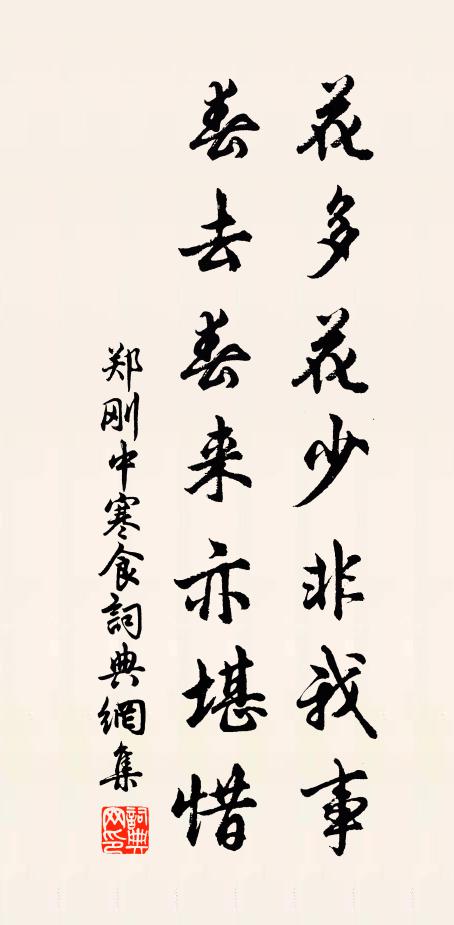 花多花少非我事
春去春来亦堪惜
郑刚中寒食詞典網集
詞典网印